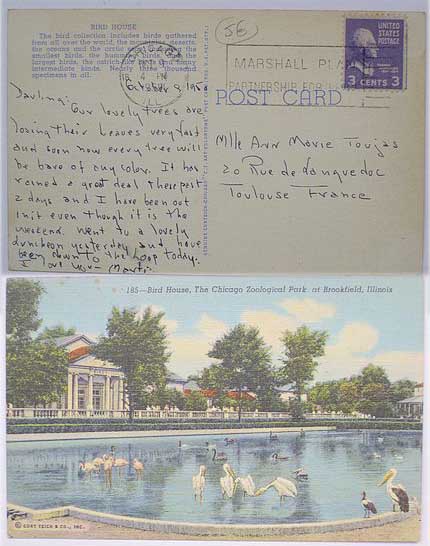 BIRD HOUSE
The bird collection includes birds gathered
from all over the world, the mountains, deserts,
the oceans and the arctic
smallest birds, the humming birds,
largest birds, the ostrich
intermediate kinds. Nearly three thousand
specimens in all.
56
CHICAGO
4 PM
ILL
MARSHALL PLAN
PARTNERSHIP FOR
UNITED
STATES
POSTAGE
3 CENTS 3
POST CARD
Oct. 9,
Darling:
Our lovely trees are
losing their leaves very fast
and soon now every tree will
be bare of any color. It has
rained a great deal these past
2 days and I have been out
in it even though it is the
weekend. Went to a lovely
luncheon yesterday and have
been down to the Loop today.
I
Mlle Ann Marie Toujas
20 Rue de Languedoc
Toulouse France
185—Bird House, The Chicago Zoological Park at Brookfield, Illinois
© CURT TEICH & CO., INC.